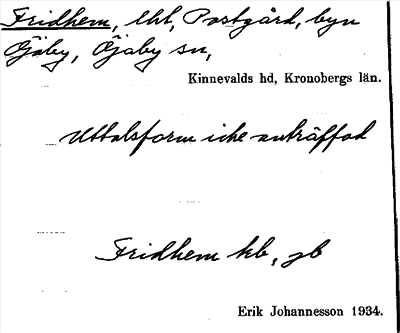 Fridhem, lht, Postgård, byn
Öjaby, Öjaby sn,
Kinnevalds hd, Kronobergs län.
Uttalsform icke anträffad
Fridhem kb, jb
Erik Johannesson 1934.